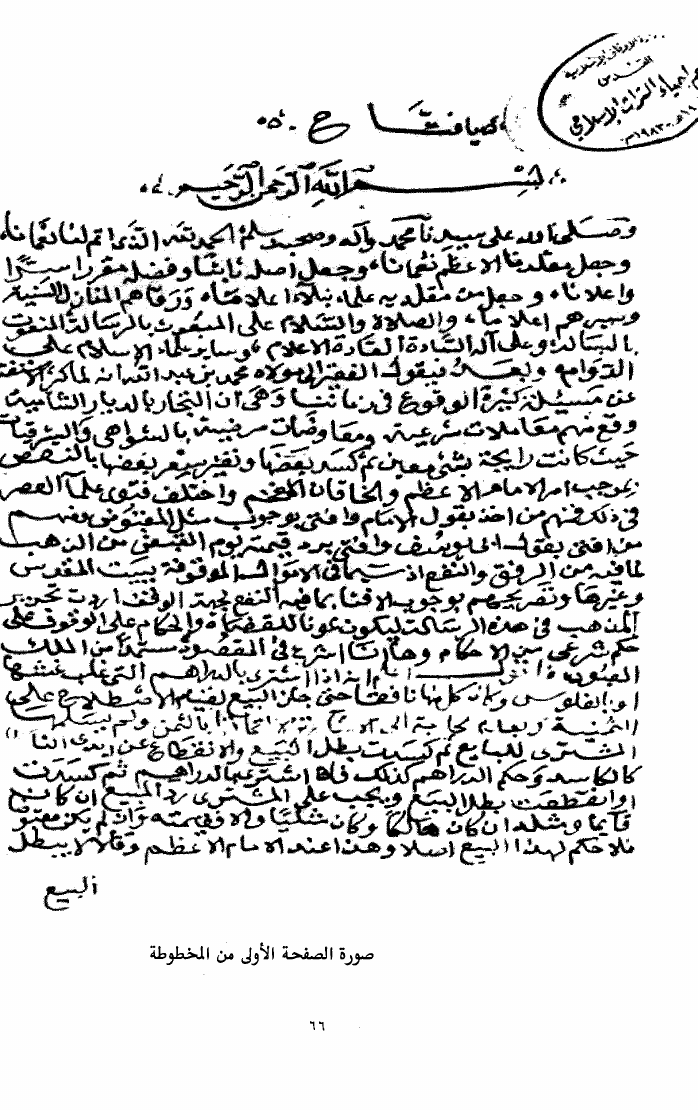 القدس
إحياء التراث الإسلامي
يا فتاح
بسم الله الرحمن الرحيم
وصلى الله على سيدنا محمد وآله وصحبه وسلم الحمد لله الذي اتم لنا نعمانا
وجعل مقلدنا الاعظم نعمانا وجعل اصله ثابتا وفضله مقررا سرا
واعلانا وجعل من مقلديه علماء نبلاء اعلاما ورقاهم المنازل السنية
وصيرهم اعلاما والصلاة والسلام على المبعوث بالرسالة المنعوت
بالبسالة وعلى آله السادة القادة الاعلام وساير علماء الإسلام على
الدوام وبعد فيقول الفقير الى مولاه محمد بن عبد الله انه لما كثر الاستفتا
عن مسئلة كثيرة الوقوع في زماننا وهي ان التجار بالديار الشامية
وقع منهم معاملات شرعية ومعاوضات مرضية بالشواهي والشرفيات
حيث كانت رايجة بشئ معين ثم كسد بعضها وتغير سعر بعضها بالنقص
بموجب امر الامام الاعظم والخاقان الافخم واختلف فتوى علما العصر
في ذلك فمنهم من اخذ بقول الامام وافتى بوجوب مثل المقبوض ومنهم
من افتى بقول ابي يوسف وافتى برد قيمته يوم القبض من الذهب
لما فيه من الرفق والنفع اذ سيما في الاموال الموقوفة ببيت المقدس
وغيرها وتصريحهم بوجوب الافتا بما فيه النفع لجهة الوقف اردت تحرير
المذهب في هذه الرسالة ليكون عونا للقضاة والحكام على الوقوف على
حكم شرعي من الاحكام وها انا اشرع في المقصود مستمدا من الملك
المعبود اعلم انه اذا اشترى بالدراهم التي غلب غشها
او بالفلوس وكان كل منها نافقا حتى جاز البيع لقيام الاصطلاح على
الثمنية ولعدم الحاجة الى الاشارة بالثمن ولم يسلمها
المشتري للبايع ثم كسدت بطل البيع والانقطاع عن ايدي النا
كالكاسد وحكم الدراهم كذلك فاذا اشترى بالدراهم ثم كسدت
او انقطعت بطل البيع ويجب على المشتري رد المبيع ان كان
قايما ومثله ان كان هالكا وكان مثليا والا فقيمته وان لم يكن مقبوضا
فلا حكم لهذا البيع اصلا وهذا عند الامام الاعظم وقالا لا يبطل
البيع
صورة الصفحة الأولى من المخطوطة
٦٦